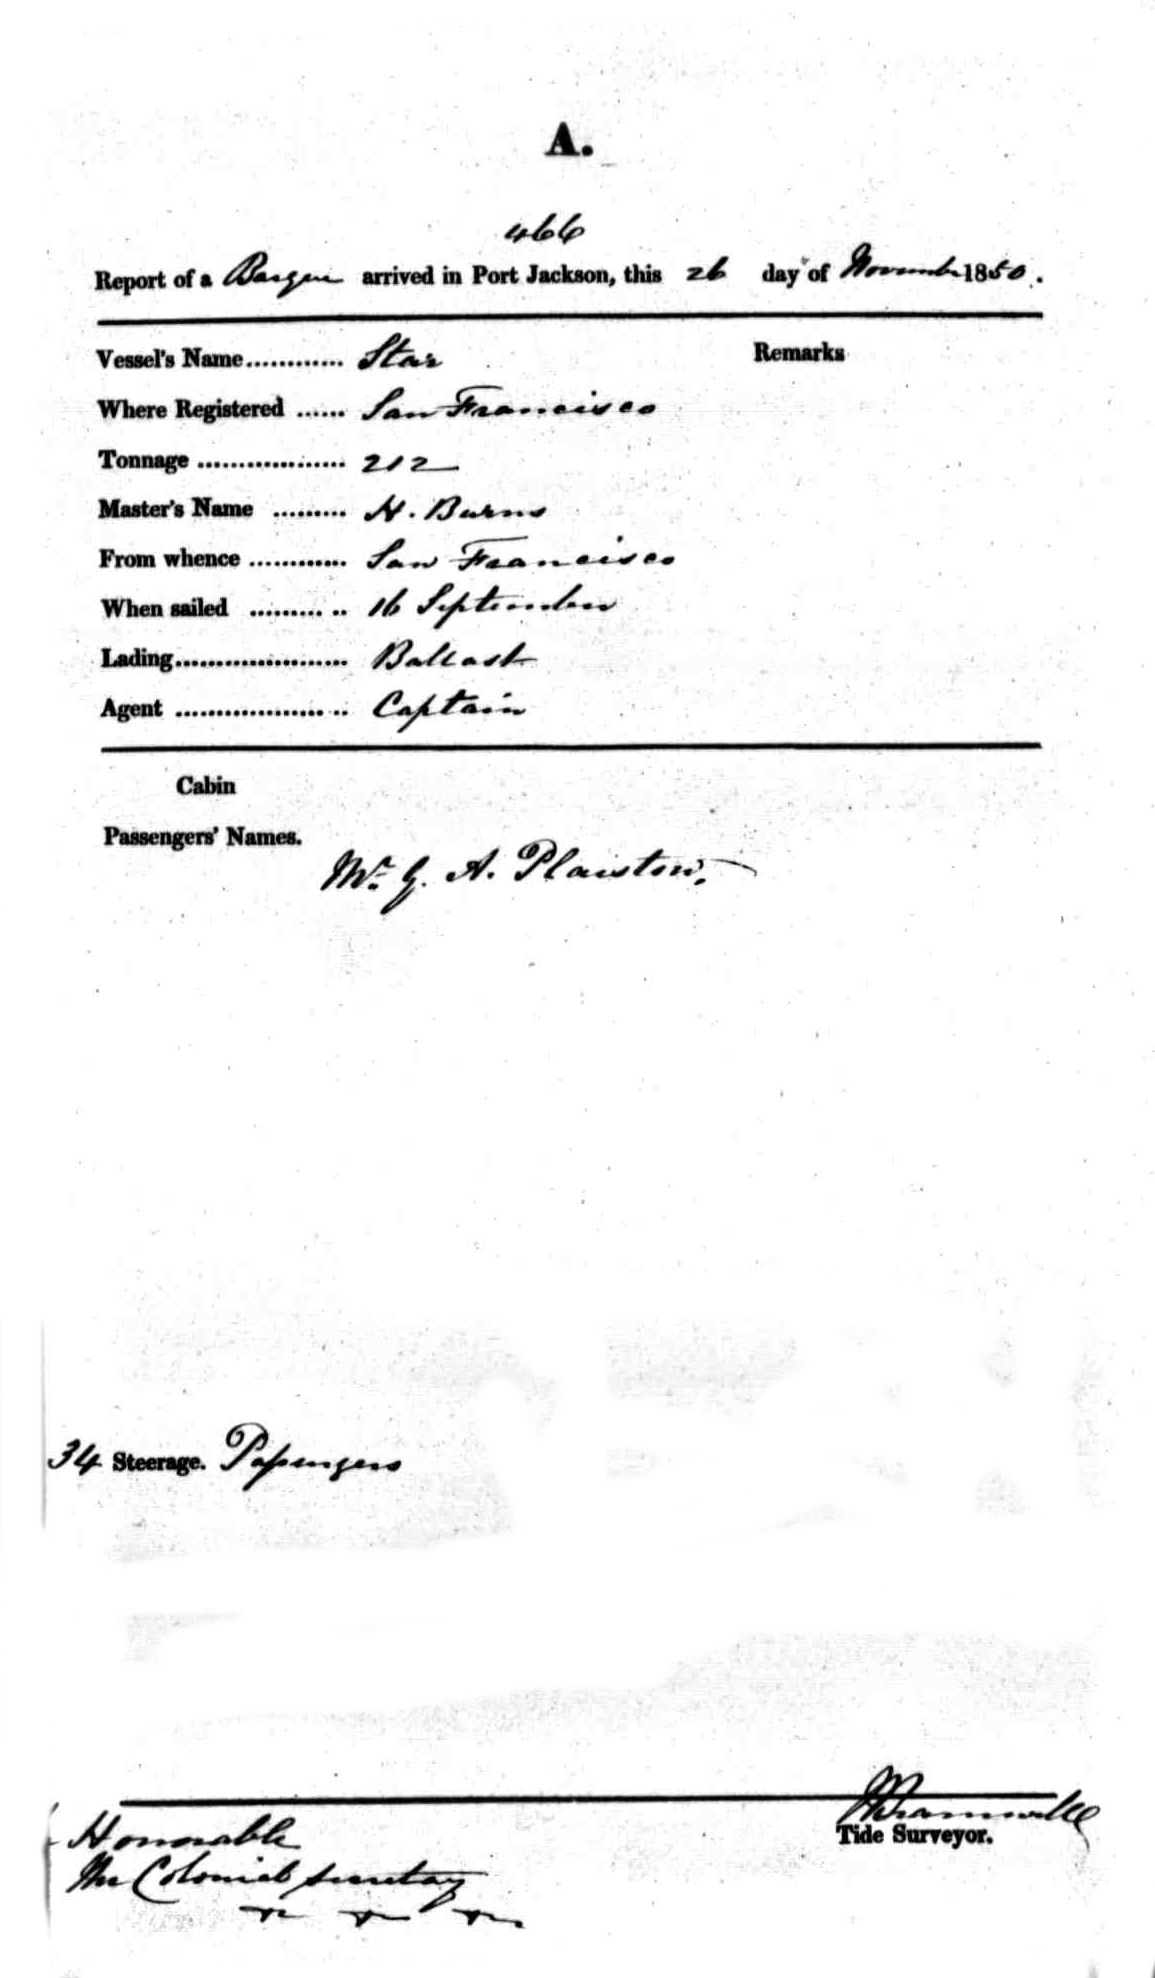 A.
466
Report of a Barque arrived in Port Jackson, this 26 day of November 1850.
Vessel's Name............ Star Remarks
Where Registered ...... San Francisco
Tonnage .................. 212
Master's Name ......... H. Burns
From whence ............ San Francisco
When sailed ........... 16 September
Lading..................... Ballast
Agent .................... Captain
Cabin
Passengers' Names.
Mr. G. A. Plaistow.
34 Steerage. Passengers
Honorable
Tide Surveyor.
The Colonial Secretary